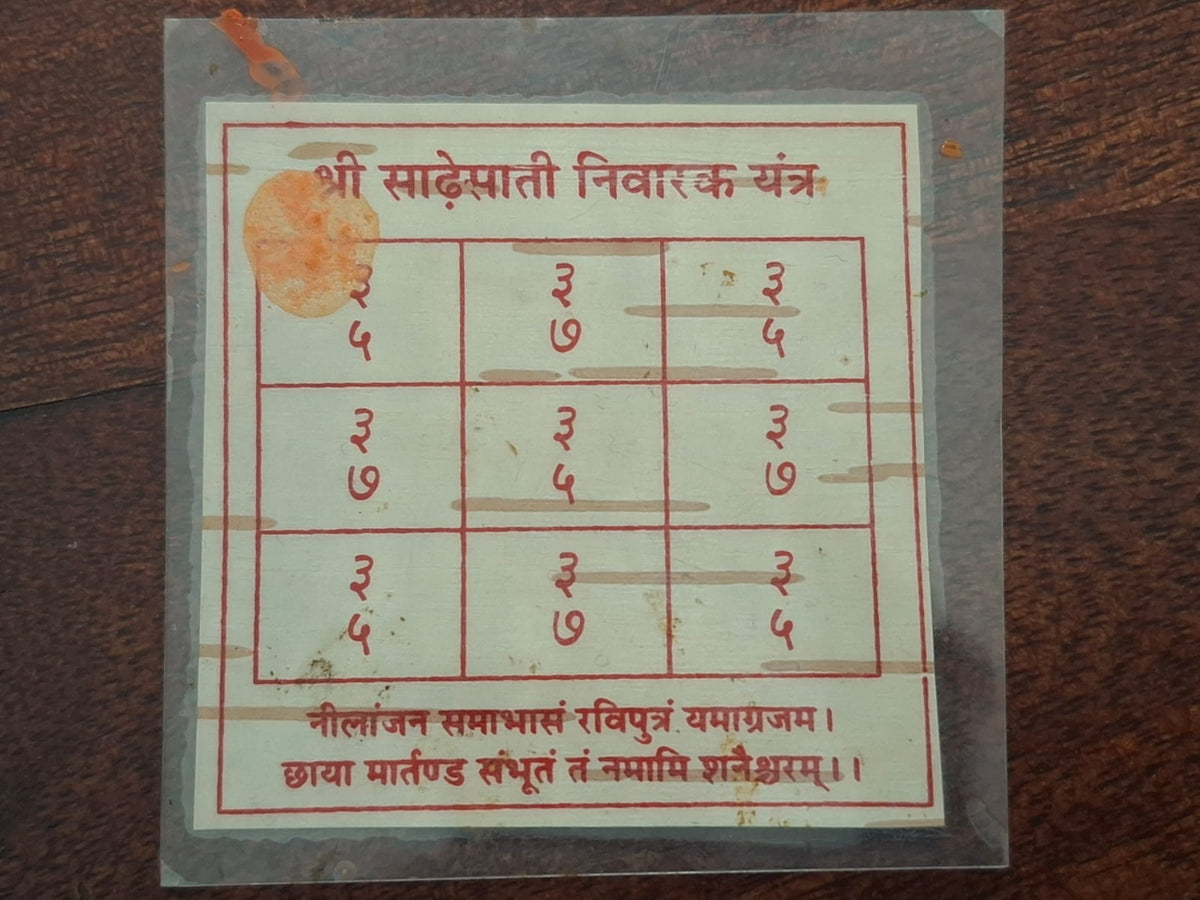 श्री साढ़ेसाती निवारक यंत्र
३ ३ ३
५ ७ ५
३ ३ ३
७ ५ ७
३ ३ ३
५ ७ ५
नीलांजन समाभासं रविपुत्रं यमाग्रजम।
छाया मार्तण्ड संभूतं तं नमामि शनैश्चरम्।।